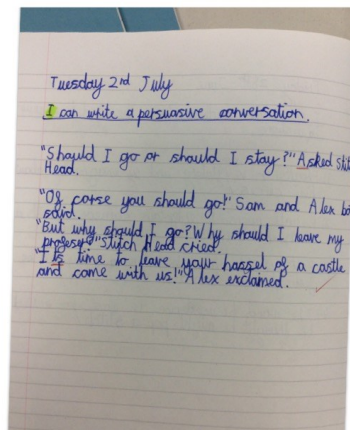 Tuesday 2nd July
I can write a persuasive conversation.
"Should I go or should I stay?" Asked
Head.
"Of corse you should go!" Sam and Alex
said.
"But why should I go? Why should I leave my
profeser?" Stitch Head cried.
"I is time to leave your hassel of a castle
and come with us!" Alex exclaimed.